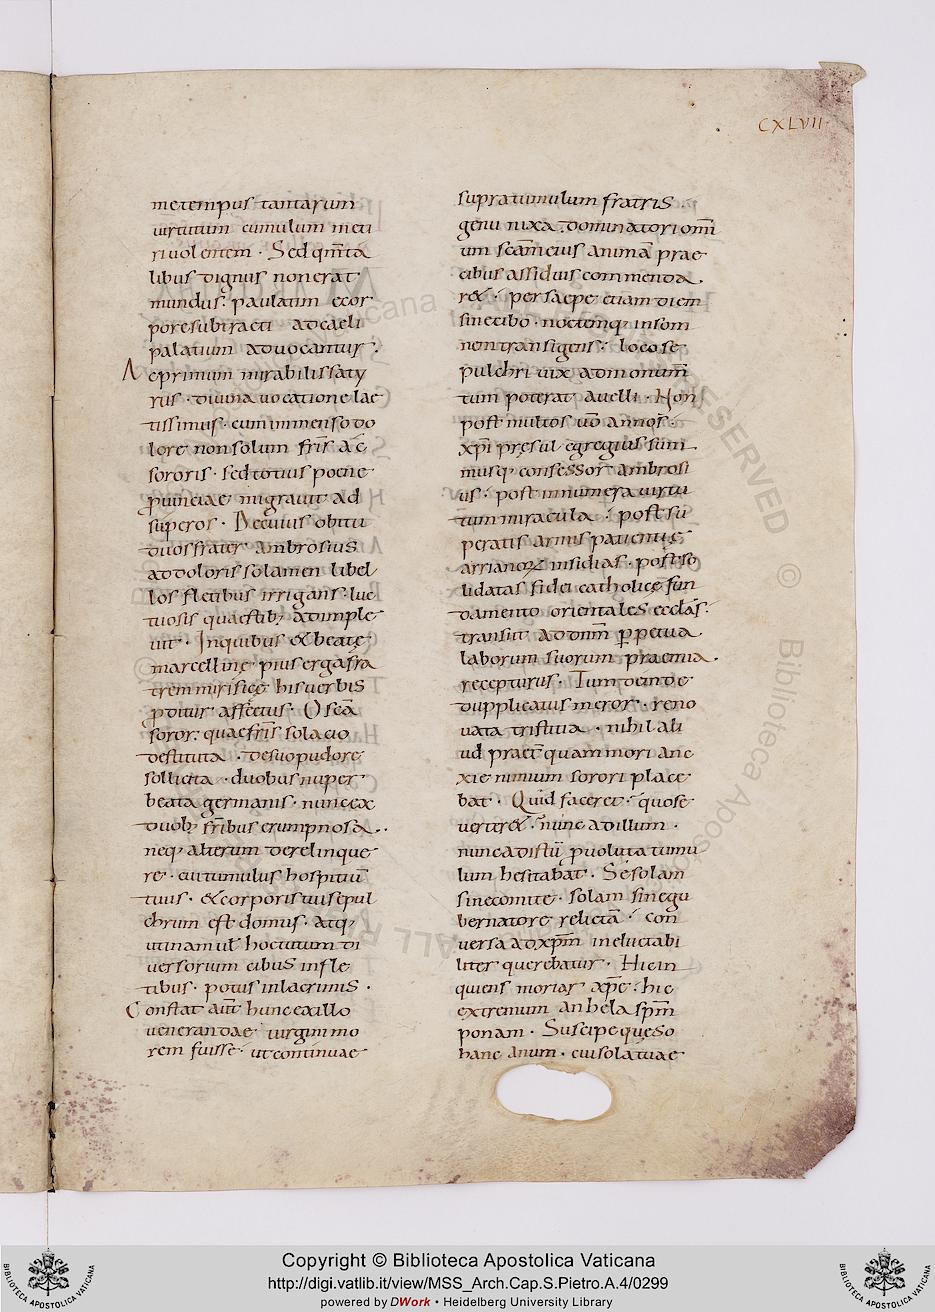 CXLVII
me tempus tantarum
uirtutum cumulum meti
ri uolentem · Sed qm̄ ta
libus dignus non erat
mundus: paulatim e cor
pore subtracti ad caeli
palatium aduocantur.
Ac primum mirabilis saty
rus · diuina uocatione lae
tissimus · cum inmenso do
lore non solum fr̄is ac
sororis · sed totius poene
ꝓuinciae migrauit ad
superos · De cuius obitu
duos frater ambrosius
ad doloris solamen libel
los fletibus irrigans · luc
tuosis quaestib; adimple
uit · In quibus & beatę
marcellinę pius erga fra
trem mirificę his uerbis
ꝓditur affectus · O sc̄a
soror · quae fr̄is solacio
destituta · de suo pudore
sollicita · duobus nuper
beata germanis · nunc ex
duob; fr̄ibus erumpnosa ·
neq; alterum derelinque
re · cui tumulus hospitiū
tuus · & corporis tui sepul
chrum est domus · atq;
utinam ul̄ hoc tutum di
uersorium cibus in fle
tibus · potus in lacrimis ·
Constat aut̄ hunc ex illo
uenerandae uirgini mo
rem fuisse · ut continuae
supra tumulum fratris ·
genu nixa dominatori om̄i
um sc̄am eius animā prae
cibus assiduis commenda
r& · persaepe etiam diem
sine cibo · noctemq; insom
nem transigens: loco se
pulchri uix ad monum̄
tum poterat auelli · Non
post multos uō annos ·
xp̄i pręsul egregius sum
musq; confessor ambrosi
us · post innumera uirtu
tum miracula · post su
peratis armis pauentis
arrianorꝝ insidias · post so
lidatas fidei catholicę fun
damento orientales eccl̄as ·
transiit ad dnm̄ ꝑpetua
laborum suorum praemia ·
recepturus · Tum deinde
dupplicatus meror · reno
uata tristitia · nihil ali
ud praet̄ quam mori anc
xie nimium sorori place
bat · Quid faceret · quo se
uerter& · nunc ad illum ·
nunc ad istū ꝓuoluta tumu
lum hesitabat · Se solam
sine comite · solam sine gu
bernatore relictā · con
uersa ad xp̄m ineluctabi
liter querebatur · Hic in
quiens moriar xp̄e · hic
extremum anhela sp̄m
ponam · Suscipe quęso
hanc anim̄ · cui sola tuae
Copyright © Biblioteca Apostolica Vaticana
http://digi.vatlib.it/view/MSS_Arch.Cap.S.Pietro.A.4/0299
powered by DWork • Heidelberg University Library